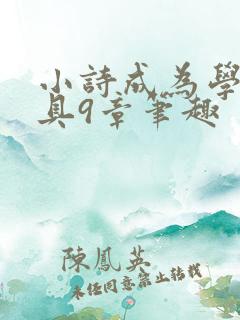 小詩成為學
具9章筆趣
陳鳳英
未經同意禁止轉載